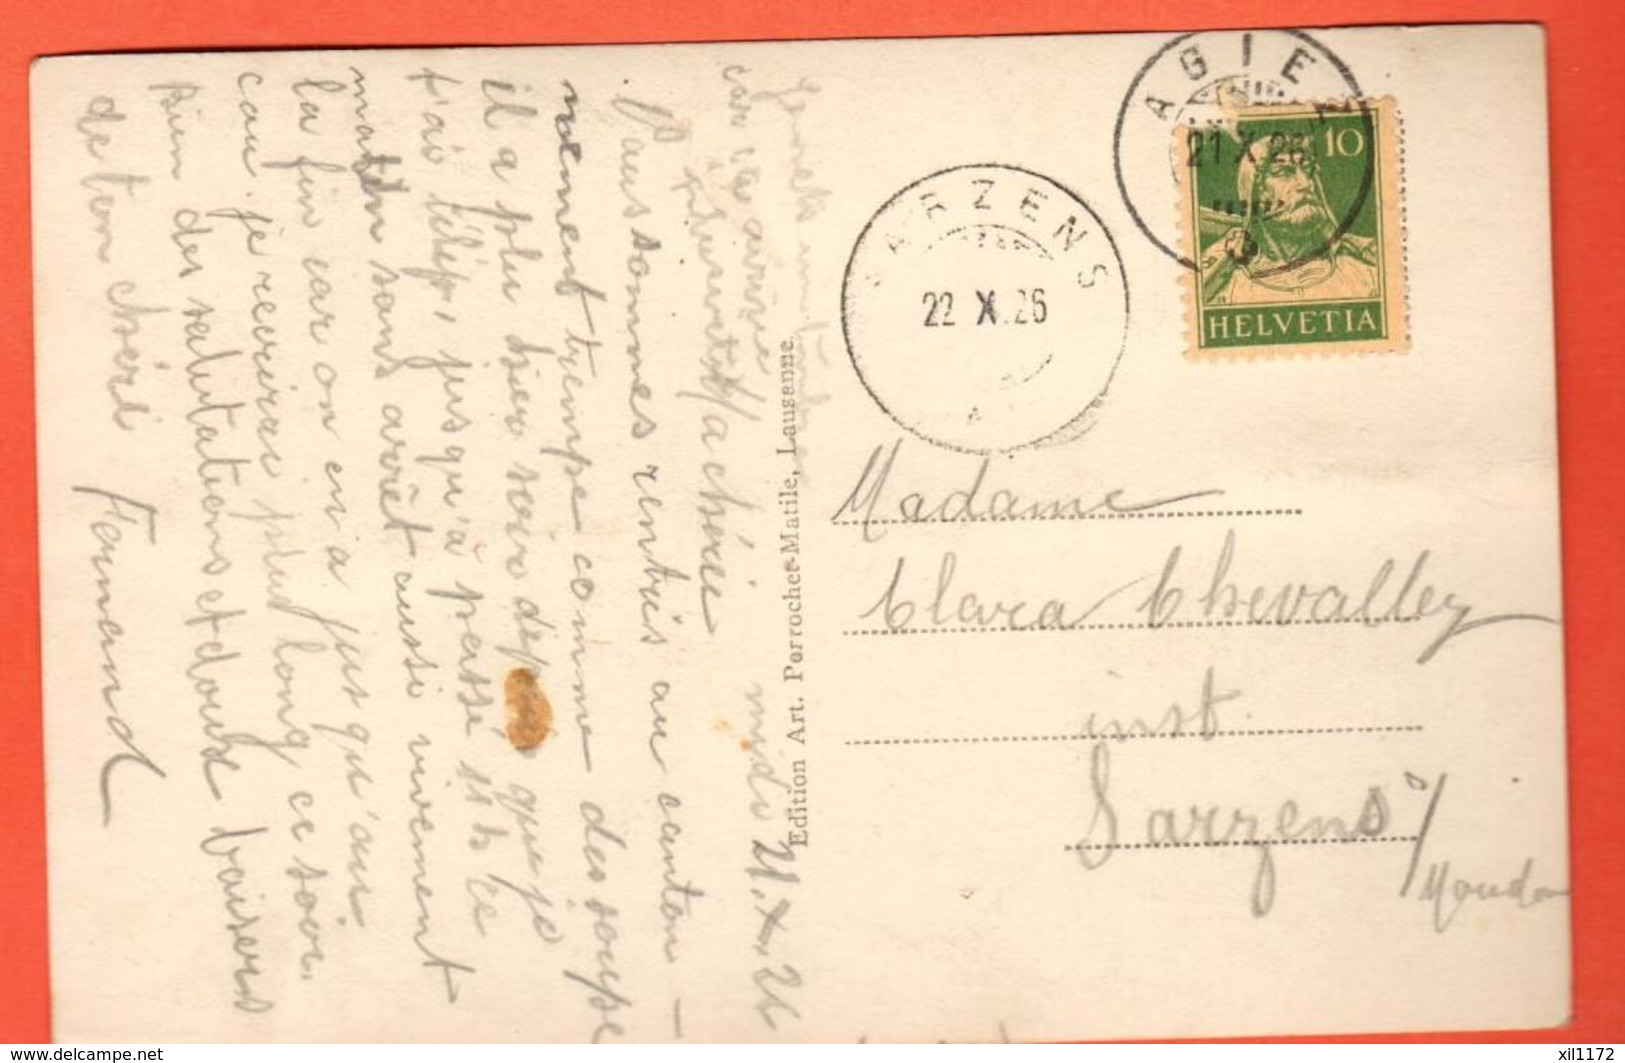 midi 21.X.26
Ma chérie
Nous sommes rentrés au canton-
nement trempe comme des soupe
il a plu hier soir depuis que je
t'ai télép, jusqu'à passé 11 h ce
matin sans arrêt aussi vivement
la fin car on en a jusqu'au
cou. je recrirai plus long ce soir.
Bien des salutations et doux baisers
de ton chéri Fernand
Edition Art. Perrochet-Matile, Lausanne
AGIEZ
21 X 26
10
HELVETIA
SARZENS
22 X.26
Madame
Clara Chevalley
inst.
Sarzens s/
Moudon
delcampe.net
xil1172